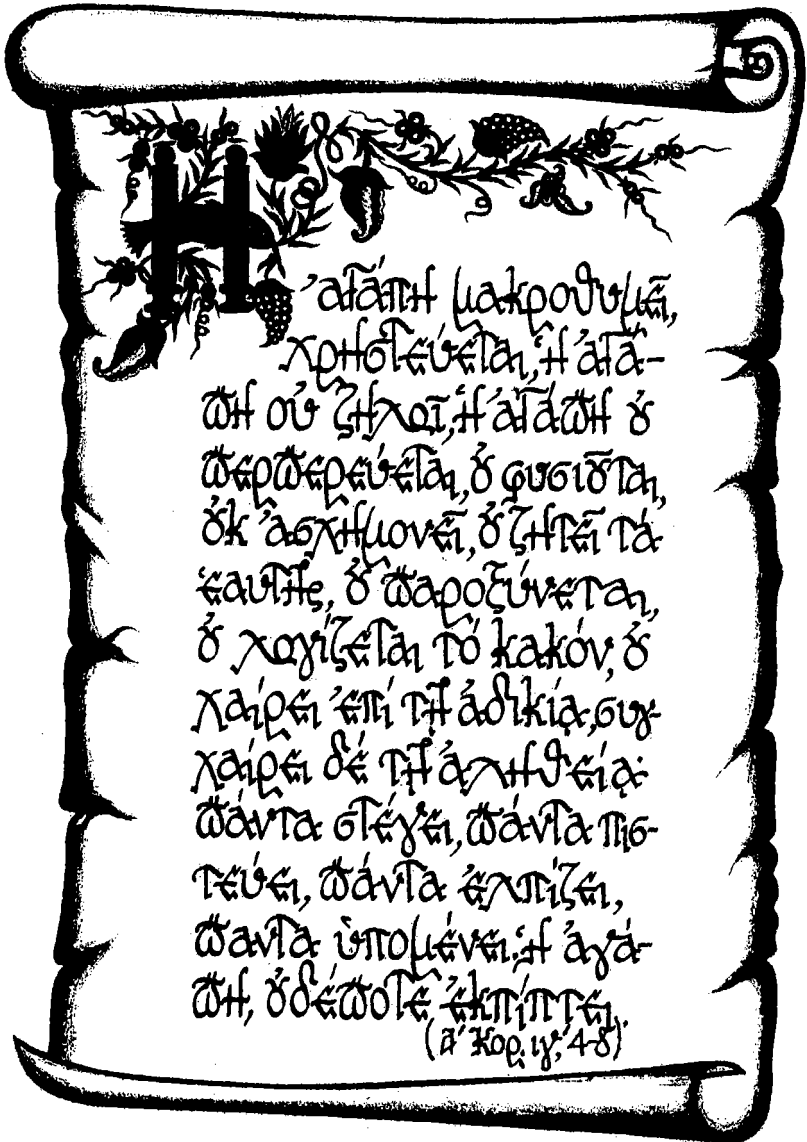 Η ἀγάπη μακροθυμεῖ,
χρηστεύεται, ἡ ἀγά-
πη οὐ ζηλοῖ, ἡ ἀγάπη οὐ
περπερεύεται, οὐ φυσιοῦται,
οὐκ ἀσχημονεῖ, οὐ ζητεῖ τά
ἑαυτῆς, οὐ παροξύνεται,
οὐ λογίζεται τό κακόν, οὐ
χαίρει ἐπί τῇ ἀδικίᾳ, συγ-
χαίρει δέ τῇ ἀληθείᾳ·
πάντα στέγει, πάντα πισ-
τεύει, πάντα ἐλπίζει,
παντα ὑπομένει· ἡ ἀγά-
πη, οὐδέποτε ἐκπίπτει.
(α΄ Κορ. ιγ΄, 4-8)